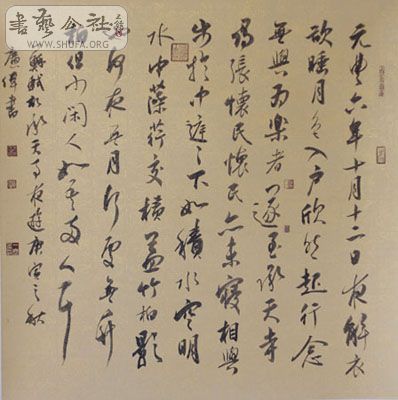 書藝公社
WWW.SHUFA.ORG
元豐六年十月十二日夜解衣
欲睡月色入戶欣然起行念
無與為樂者遂至承天寺
尋張懷民懷民亦未寢相與
步於中庭之下如積水空明
水中藻荇交橫蓋竹柏影
也何夜無月何處無竹
柏但少閑人如吾兩人耳
蘇軾於承天寺夜遊庚寅之秋
偉書